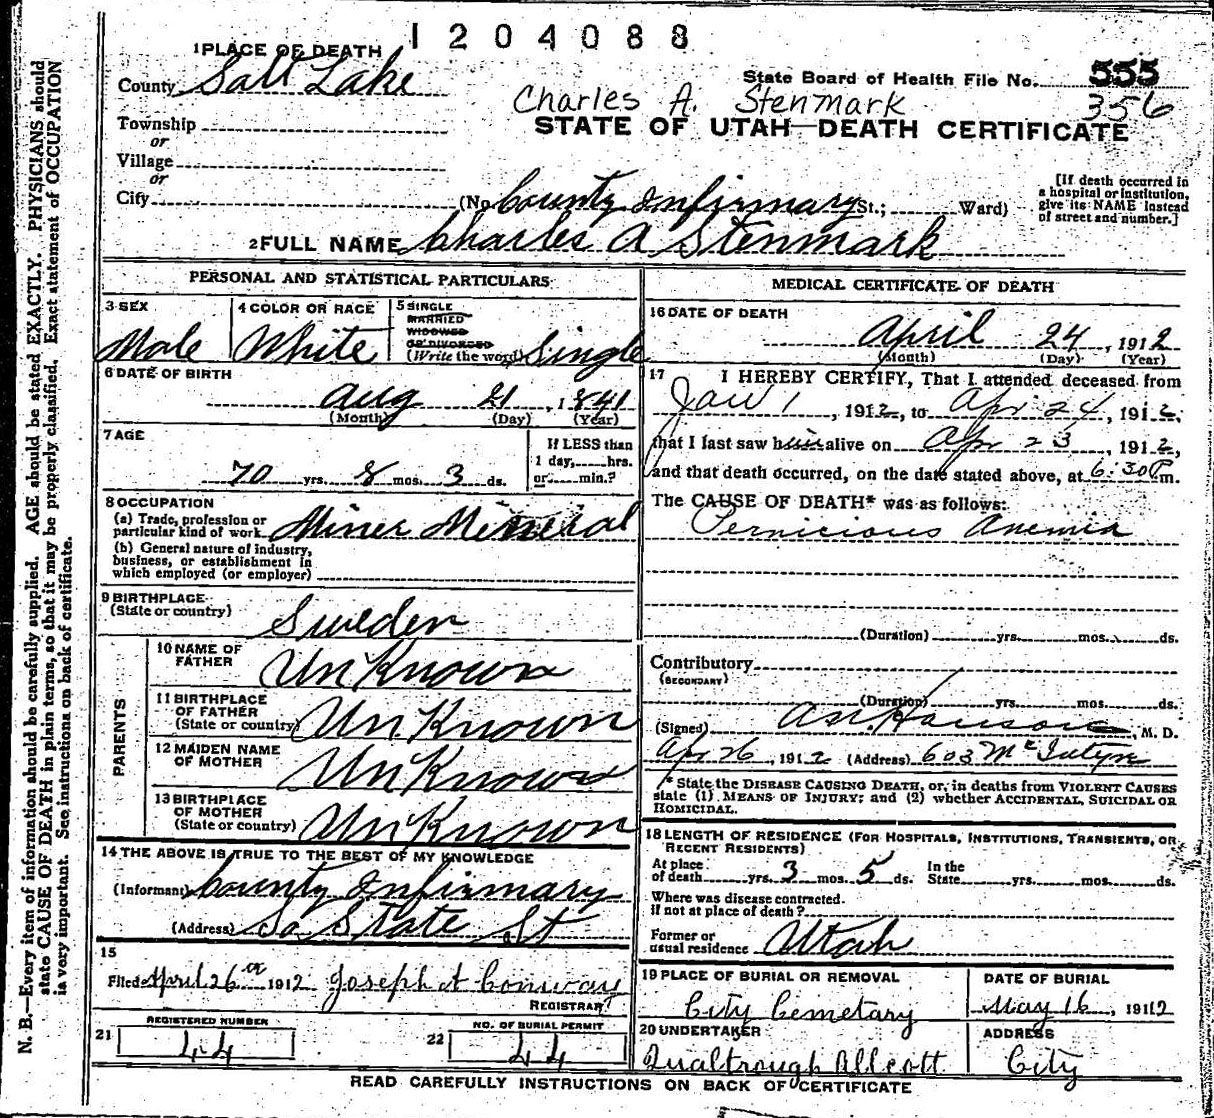 1204088
1 PLACE OF DEATH
County Salt Lake
State Board of Health File No. 555
356
Charles A. Stenmark
STATE OF UTAH—DEATH CERTIFICATE
Township
or
Village
or
City (No. County Infirmary St.; Ward)
[If death occurred in a hospital or institution, give its NAME instead of street and number.]
2 FULL NAME Charles A Stenmark
PERSONAL AND STATISTICAL PARTICULARS
3 SEX
Male
4 COLOR OR RACE
White
5 SINGLE
MARRIED
WIDOWED
OR DIVORCED
(Write the word) Single
6 DATE OF BIRTH
Aug 21, 1841
(Month) (Day) (Year)
7 AGE
70 yrs. 8 mos. 3 ds.
If LESS than
1 day, hrs.
or min.?
8 OCCUPATION
(a) Trade, profession or
particular kind of work Miner Mineral
(b) General nature of industry,
business, or establishment in
which employed (or employer)
9 BIRTHPLACE
(State or country)
Sweden
PARENTS
10 NAME OF
FATHER
UnKnown
11 BIRTHPLACE
OF FATHER
(State or country) UnKnown
12 MAIDEN NAME
OF MOTHER
UnKnown
13 BIRTHPLACE
OF MOTHER
(State or country) UnKnown
14 THE ABOVE IS TRUE TO THE BEST OF MY KNOWLEDGE
(Informant) County Infirmary
(Address) So State St
15
Filed April 26 1912 Joseph Conway
REGISTRAR
REGISTERED NUMBER
21 44
NO. OF BURIAL PERMIT
22 44
MEDICAL CERTIFICATE OF DEATH
16 DATE OF DEATH
April 24, 1912
(Month) (Day) (Year)
17 I HEREBY CERTIFY, That I attended deceased from
Jan 1, 1912, to Apr 24, 1912,
that I last saw him alive on Apr 23, 1912,
and that death occurred, on the date stated above, at 6:30 P m.
The CAUSE OF DEATH* was as follows:
Pernicious Anemia
(Duration) yrs. mos. ds.
Contributory
(SECONDARY)
(Duration) yrs. mos. ds.
(Signed) M. D.
Apr 26, 1912 (Address) 603 McIntyre
* State the DISEASE CAUSING DEATH, or, in deaths from VIOLENT CAUSES
state (1) MEANS OF INJURY; and (2) whether ACCIDENTAL, SUICIDAL OR
HOMICIDAL.
18 LENGTH OF RESIDENCE (FOR HOSPITALS, INSTITUTIONS, TRANSIENTS, OR
RECENT RESIDENTS)
At place
of death yrs. 3 mos. 5 ds. In the
State yrs. mos. ds.
Where was disease contracted.
if not at place of death?
Former or
usual residence Utah
19 PLACE OF BURIAL OR REMOVAL
City Cemetary
DATE OF BURIAL
May 16, 1912
20 UNDERTAKER
Qualtrough Allcott
ADDRESS
City
READ CAREFULLY INSTRUCTIONS ON BACK OF CERTIFICATE
N. B.—Every item of information should be carefully supplied. AGE should be stated EXACTLY. PHYSICIANS should
state CAUSE OF DEATH in plain terms, so that it may be properly classified. Exact statement of OCCUPATION
is very important. See instructions on back of certificate.